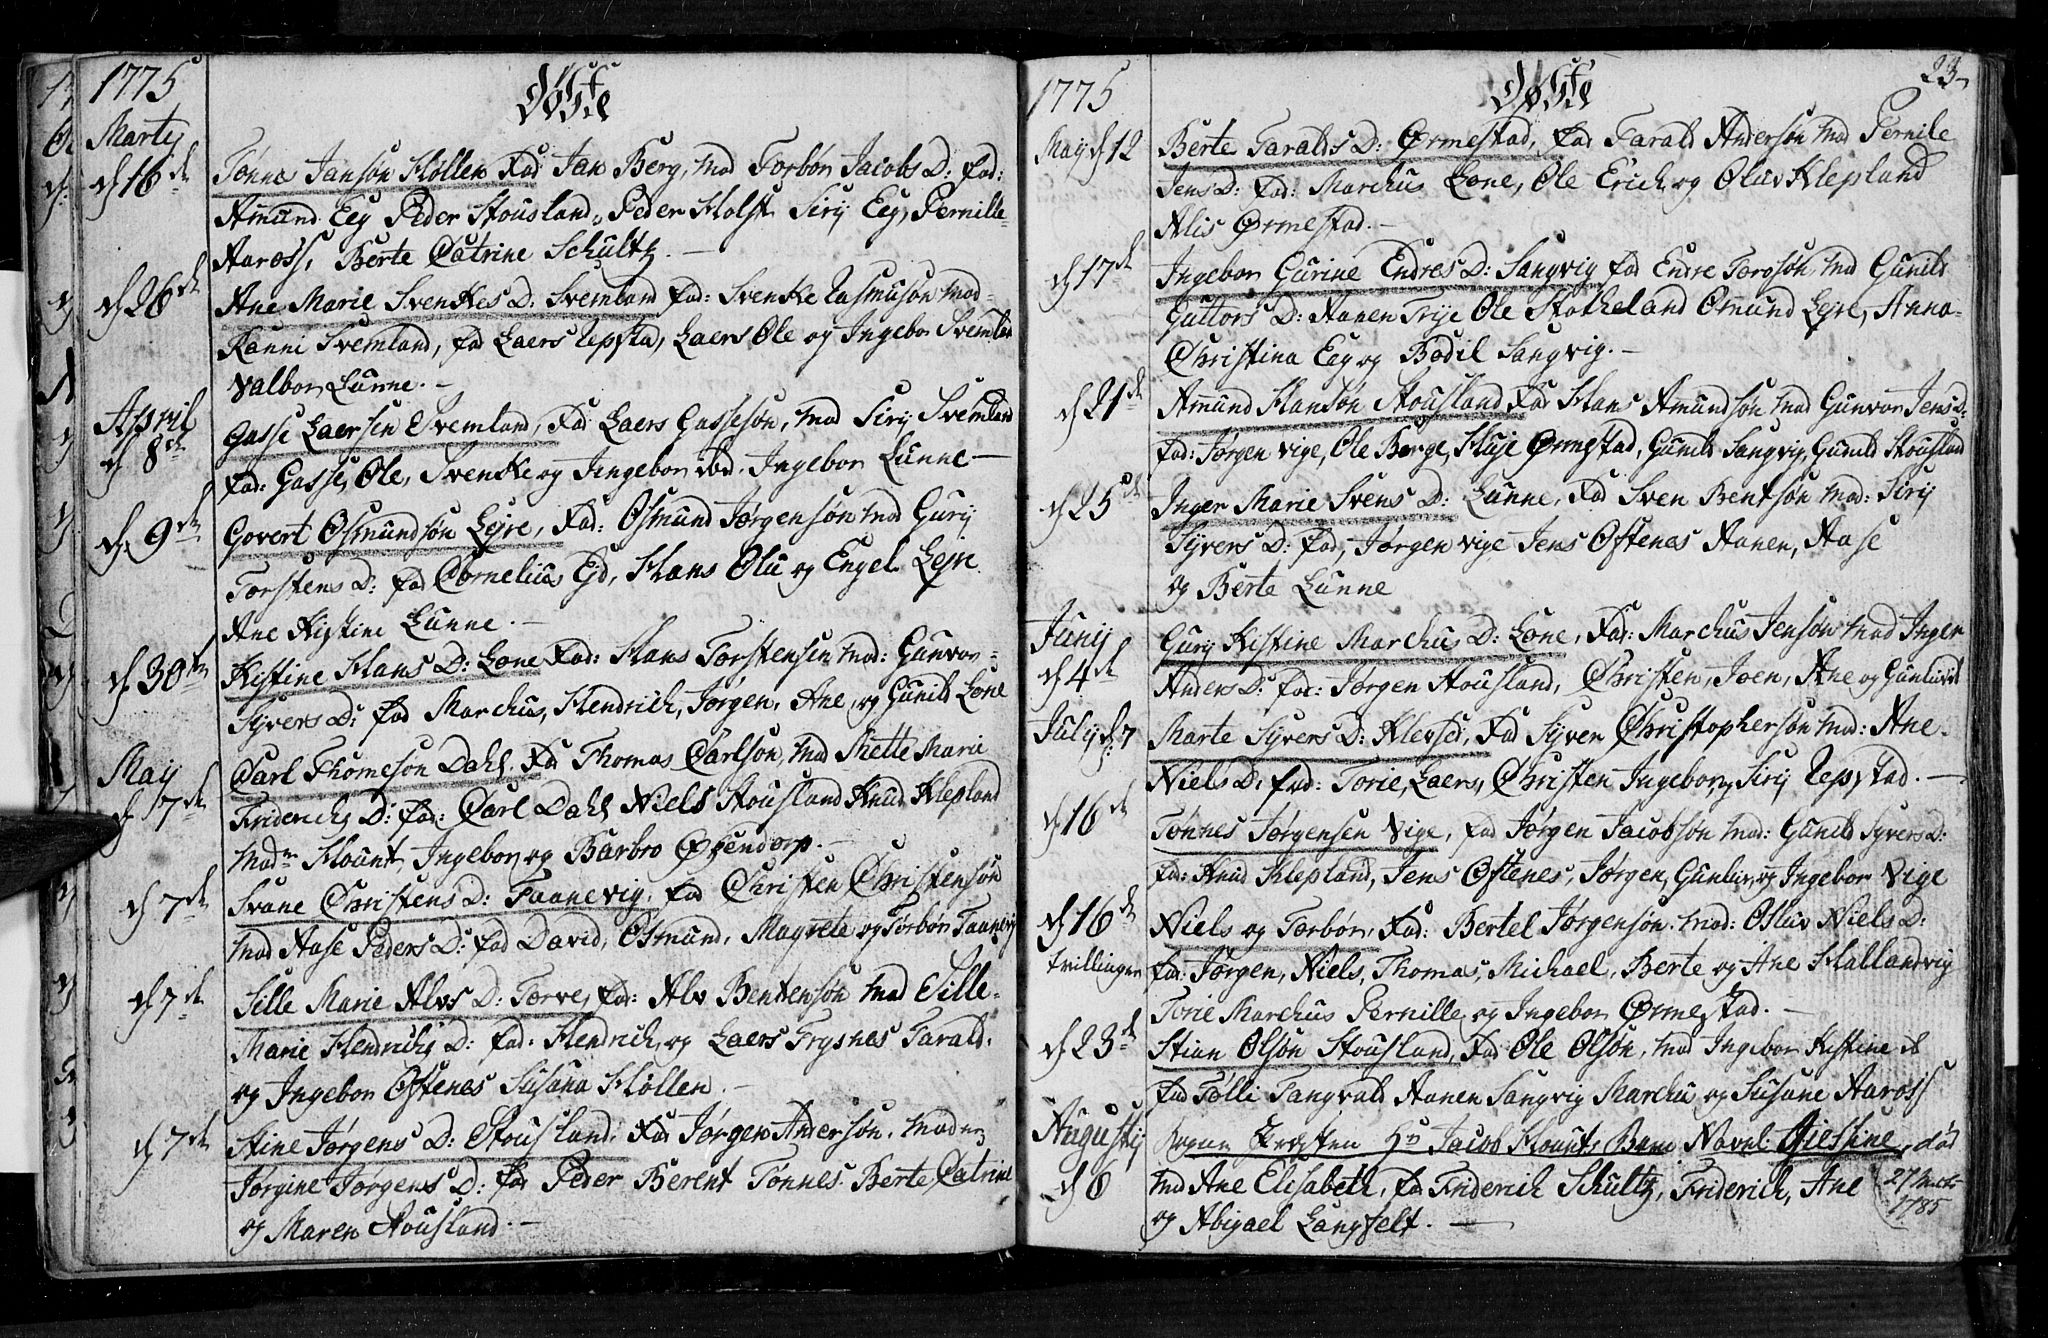 1775
Døbte
Martij
d 16de
Tønnes Jansøn Høllen Fad: Jan Berg, Mod Torbør Jacobs D: fad:
Amund Eeg Peder Stousland, Peder Holst Sirij Eeg, Pernille
Aaross, Berte Catrine Schultz. —
d 26de
Ane Marie Svenkes D: Svemland fad: Svenke Rasmuson Mod
Ranni Svemland, fad Laers Repsta, Laers Ole og Ingebor Svemland
Valbor Lunne. —
April
d 8de
Gasse Laersen Svemland, Fad Laers Gassesøn, Mod Sirij Svemland
fad: Gasse, Ole, Svenke og Jngebor ibd. Ingebor Lunne —
d 9de
Govert Osmundsøn Lejre, Fad: Osmund Jørgensøn Mod Gurij
Torstens D: fad Cornelius Ejd, Hans Olu og Engel Lejre
Ane Kistine Lunne. —
d 30te
Kistine Hans D: Lone Fad: Hans Torstensen Mod: Gunvor
Syvers D: fad Marchus, Hendrich, Jørgen, Ane, og Gunild Lone
May
d 7de
Carl Thomesøn Dahl. Fad Thomas Carlsøn, Mod Mette Marie
Friderichs D: fad: Carl Dahl Niels Stousland Knud Klepland
Mad: Mount, Ingebor og Barbro Øyendorp. —
d 7de
Svane Christens D: Taanevig, fad Christen Christensøn
Mod Aase Peders D: fad David, Osmund, Magrete og Torbør Taanevig
d 7de
Sille Marie Alvs D: Torve, fad: Alv Bentensøn Mod Sille
Marie Hendrichs D: fad. Hendrich, og Laers Frysnes Tarald.
og Ingebor Oftenes Susana Høllen. —
d 7de
Stine Jørgens D: Stousland, Fad Jørgen Andersøn. Moder
Jørgine Jørgens D: fad Peder Berent Tønnes Berte Catrine
og Maren Stousland. —
1775
Døbte
23
May d 12
Berte Taralds D: Ormestad, Fad Tarald Andersøn Mod Pernile
Jens D: fad: Marchus Lone, Ole Erich og Oluv Klepland
Alis Ormestad. —
d 17de
Ingebor Gurine Endres D: Sangvig fad Endre Torosøn Mod Gunild
Guttors D: Aanen Trije Ole Stokeland Omund Lejre, Anna
Christina Eeg og Bodil Sangvig. —
d 21de
Amund Hansøn Stousland Fad Hans Amundsøn Mod Gunvor Jens D:
fad: Jørgen Vige, Ole Berge, Huje Ormestad, Gunild Sangvig, Gunild Stousland
d 25de
Inger Marie Svens D: Lunne, Fad Sven Bentsøn Mod: Sirij
Syvers D: fad, Jørgen Vige Jens Oftenes Aanen, Aase
og Berte Lunne
Junij
d 4de
Gurij Kistine Marchus D: Lone, Fad: Marchus Jensøn Mod Inger
Anders D. fad: Jørgen Stousland, Christen, Joen, Ane og Gunild
July d 7
Marte Syvers D: Klevset, Fad Syver Christophersøn Mod: Ane
Niels D: fad: Torie, Laers, Christen Ingebor, Sirij Repstad. —
d 16de
Tønnes Jørgensen Vige, fad Jørgen Jacobsøn Mod: Gunild Syvers D:
fad: Knud Klepland, Jens Oftenes, Jørgen, Gunluv, og Ingebor Vige
d 16de
tvillinger
Niels og Torbør, Fad: Bertel Jørgensøn. Mod: Osluv Niels D:
fad: Jørgen, Niels, Thomas, Michael, Berte og Ane Hallandvig
Torie Marchus Pernille og Ingebor Ormestad. —
d 23de
Stian Olsøn Stousland, Fad Ole Olsøn, Mod Ingebor Kistine
fad Tolli Tangvald Aanen Sangvig Marchu og Susane Aaross
Augustij
d 6
Sogne Præsten Hr Jacob Mounts Barn Navnl: Giesine, død
Mod Ane Elisabeth, fad Friderich Schultz, Friderich, Ane
og Abigael Langfelt. —
27 Marti
1785